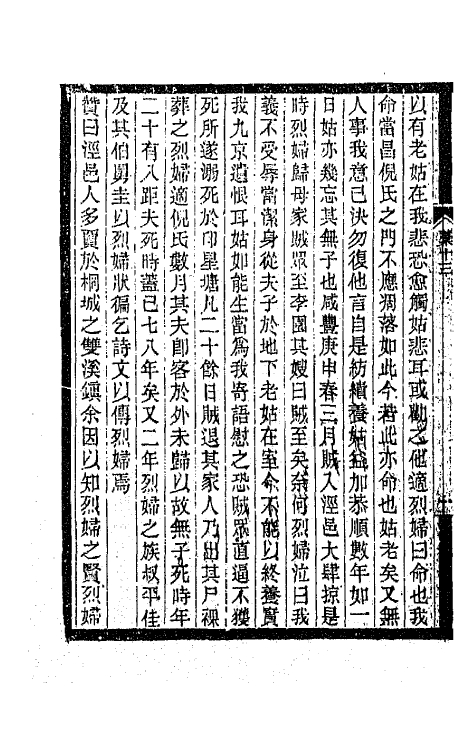 以有老姑在我悲恐愈觸姑悲耳或勸之他適烈婦曰命也我
命當昌倪氏之門不應凋落如此今若此亦命也姑老矣又無
人事我意已決勿復他言自是紡績養姑益加恭順數年如一
日姑亦幾忘其無子也咸豐庚申春三月賊入涇邑大肆掠是
時烈婦歸母家賊眾至李園其嫂曰賊至矣奈何烈婦泣曰我
義不受辱當潔身從夫子於地下老姑在室命不能以終養賢
我九京遺恨耳姑如能生當為我寄語慰之恐賊眾直逼不獲
死所遂溺死於印星塘凡二十餘日賊退其家人乃出其尸裸
葬之烈婦適倪氏數月其夫卽客於外未歸以故無子死時年
二十有八距夫死時蓋已七八年矣又二年烈婦之族叔平佳
及其伯舅圭以烈婦狀徧乞詩文以傳烈婦焉
贊曰涇邑人多賈於桐城之雙溪鎮余因以知烈婦之賢烈婦